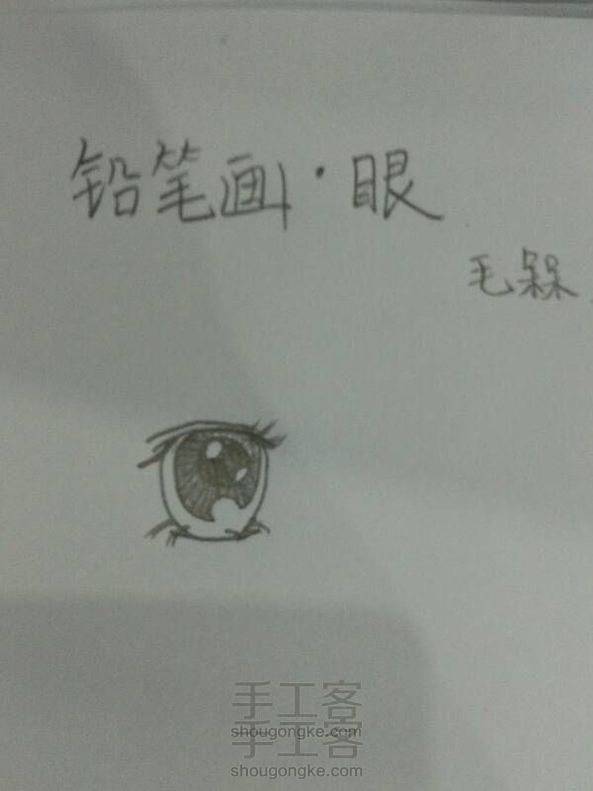 铅笔画·眼
毛槑
手工客
shougongke.com
手工客
shougongke.com